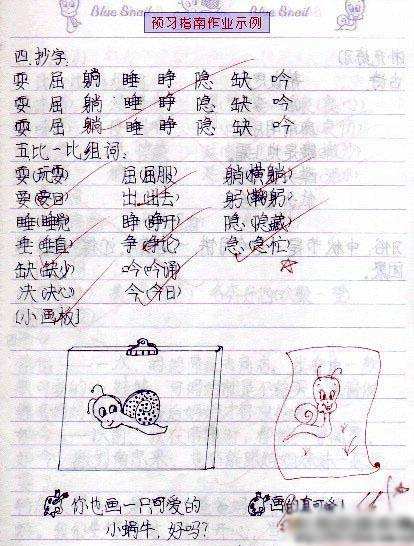 Blue Snail
Blue Snail
预习指南作业示例
四.抄字.
耍 屈 躺 睡 睁 隐 缺 吟
耍 屈 躺 睡 睁 隐 缺 吟
耍 屈 躺 睡 睁 隐 缺 吟
五比一比组词:
耍(玩耍) 屈(屈服) 躺(横躺)
要(要日) 出(出去) 躬(鞠躬)
睡(睡觉) 睁(睁开) 隐(隐藏)
垂(垂直) 争(争论) 急(急忙)
缺(缺少) 吟(吟诵)
决(决心) 今(今日)
[小画板]
你也画一只可爱的
小蜗牛,好吗?
画的真可爱!